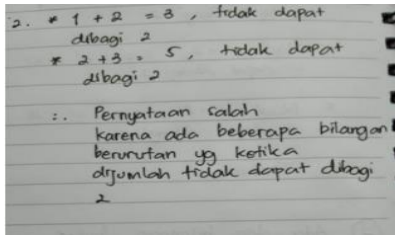 2. * 1 + 2 = 3, tidak dapat
dibagi 2
* 2 + 3 = 5, tidak dapat
dibagi 2
∴ Pernyataan salah
karena ada beberapa bilangan
berurutan yg ketika
dijumlah tidak dapat dibagi
2